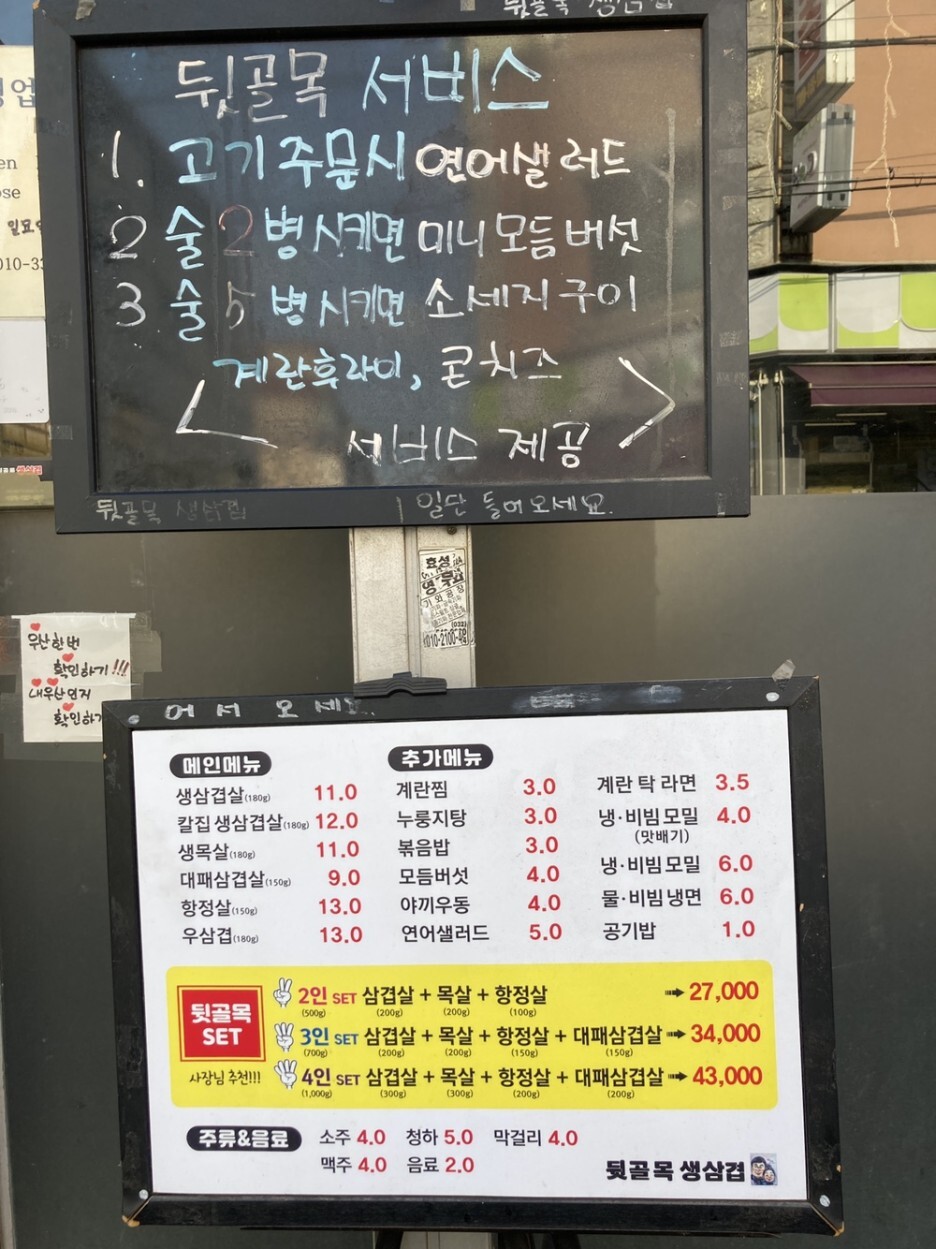 뒷골목 생삼겹
뒷골목 서비스
1. 고기 주문시 연어샐러드
2 술 2병 시키면 미니모듬버섯
3 술 5병 시키면 소세지구이
계란후라이, 콘치즈
< 서비스 제공 >
뒷골목 생삼겹 일단 들어오세요.
우산한번
확인하기!!!
내우산인지
확인하기
어서 오세요
메인메뉴
생삼겹살(180g) 11.0
칼집 생삼겹살(180g) 12.0
생목살(180g) 11.0
대패삼겹살(150g) 9.0
항정살(150g) 13.0
우삼겹(180g) 13.0
추가메뉴
계란찜 3.0
누룽지탕 3.0
볶음밥 3.0
모듬버섯 4.0
야끼우동 4.0
연어샐러드 5.0
계란 탁 라면 3.5
냉·비빔모밀 4.0
(맛배기)
냉·비빔모밀 6.0
물·비빔냉면 6.0
공기밥 1.0
뒷골목
SET
사장님 추천!!!
2인 SET 삼겹살 + 목살 + 항정살 27,000
(500g) (200g) (200g) (100g)
3인 SET 삼겹살 + 목살 + 항정살 + 대패삼겹살 34,000
(700g) (200g) (200g) (150g) (150g)
4인 SET 삼겹살 + 목살 + 항정살 + 대패삼겹살 43,000
(1,000g) (300g) (300g) (200g) (200g)
주류&음료
소주 4.0 청하 5.0 막걸리 4.0
맥주 4.0 음료 2.0
뒷골목 생삼겹